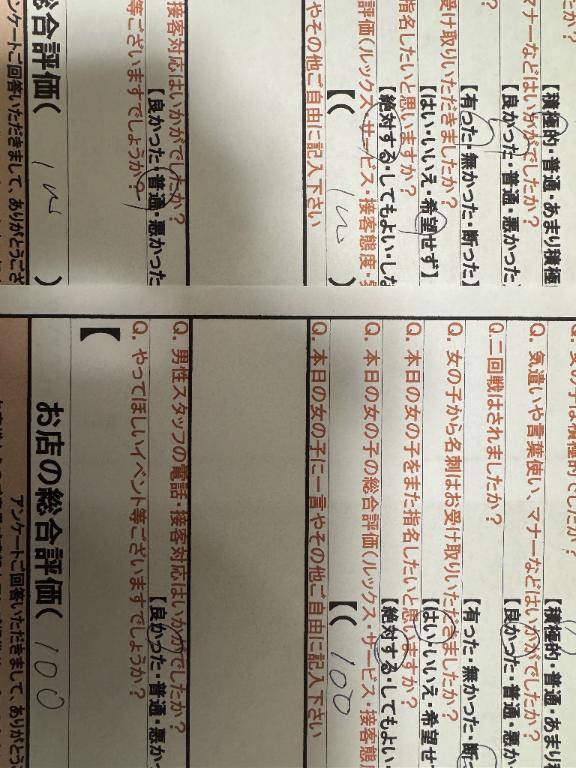 たか？
【積極的・普通・あまり積極
マナーなどはいかがでしたか？
【良かった・普通・悪かった
？
【有った・無かった・断った】
受け取りいただきましたか？
【はい・いいえ・希望せず】
指名したいと思いますか？
【絶対する・してもよい・しな
評価(ルックス・サービス・接客態度・
【( )
やその他ご自由に記入下さい
接客対応はいかがでしたか？
【良かった・普通・悪かった
等ございますでしょうか？
総合評価( )
ンケートご回答いただきまして、ありがとうござ
Q. 女の子は積極的でしたか？
【積極的・普通・あまり積
Q. 気遣いや言葉使い、マナーなどはいかがでしたか？
【良かった・普通・悪か
Q.二回戦はされましたか？
【有った・無かった・断
Q. 女の子から名刺はお受け取りいただきましたか？
【はい・いいえ・希望せ
Q. 本日の女の子をまた指名したいと思いますか？
【絶対する・してもよい・
Q. 本日の女の子の総合評価(ルックス・サービス・接客態
【( 100
Q. 本日の女の子に一言やその他ご自由に記入下さい
Q. 男性スタッフの電話・接客対応はいかがでしたか？
【良かった・普通・悪か
Q. やってほしいイベント等ございますでしょうか？
【
お店の総合評価( 100
アンケートご回答いただきまして、ありがとう